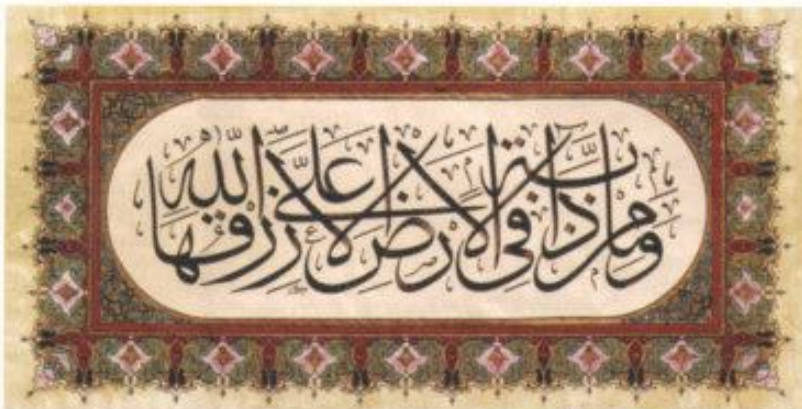 وَمَا مِنْ دَآبَّةٍ فِي الْأَرْضِ إِلَّا عَلَى اللَّهِ رِزْقُهَا